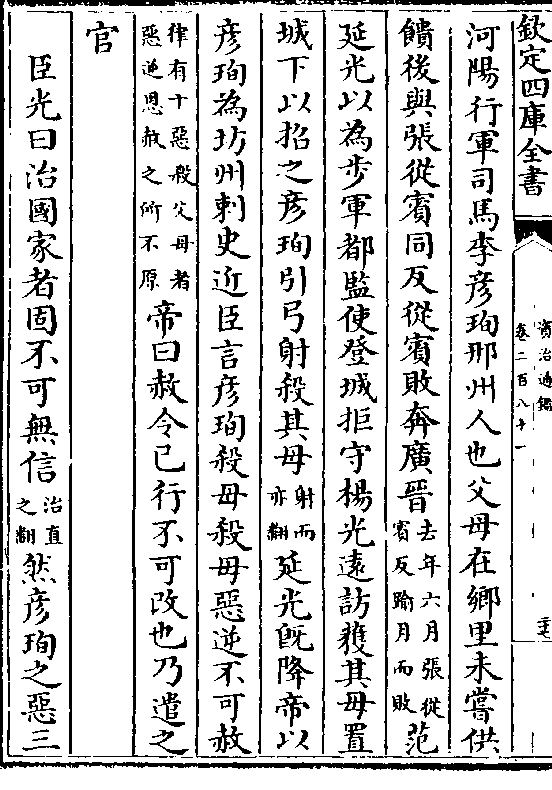 欽定四庫全書
資治通鑑
卷二百八十一
河陽行軍司馬李彦珣邢州人也父母在鄉里未嘗供
饋後與張從賓同反從賓敗奔廣晉去年六月張從賓反踰月而敗范
延光以為步軍都監使登城拒守楊光遠訪獲其母置
城下以招之彦珣引弓射殺其母射而亦翻延光既降帝以
彦珣為坊州刺史近臣言彦珣殺母殺母惡逆不可赦
律有十惡殺父母者惡逆恩赦之所不原帝曰赦令已行不可改也乃遣之
官
臣光曰治國家者固不可無信治直之翻然彦珣之惡三